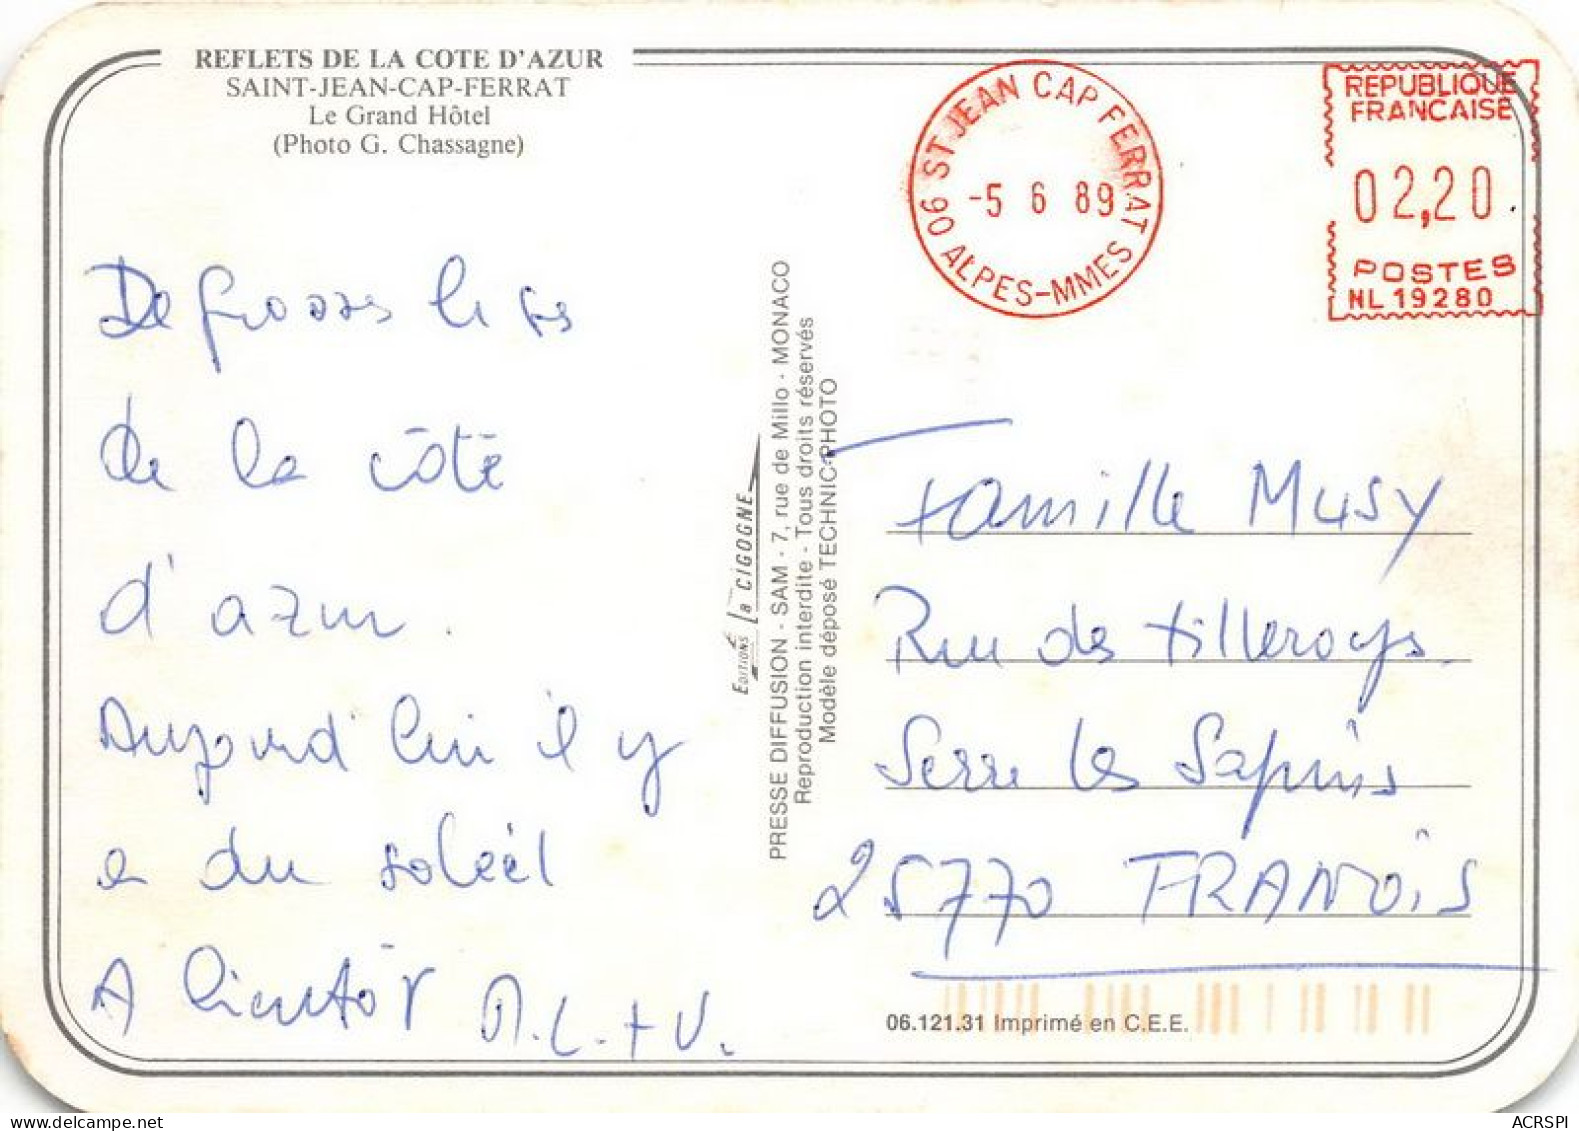 REFLETS DE LA COTE D'AZUR
SAINT-JEAN-CAP-FERRAT
Le Grand Hôtel
(Photo G. Chassagne)
06 ST JEAN CAP FERRAT
-5 6 89
ALPES-MMES
REPUBLIQUE
FRANCAISE
02,20
POSTES
NL 19280
De grosses bises
de la côte
d'azur.
Aujourd'hui il y
a du soleil
A bientôt M.L. + V.
Editions la CIGOGNE
PRESSE DIFFUSION - SAM - 7, rue de Millo - MONACO
Reproduction interdite - Tous droits réservés
Modèle déposé TECHNIC-PHOTO
Famille Musy
Rue des tilleroys.
Serre les Sapins
25770 FRANOIS
06.121.31 Imprimé en C.E.E.
delcampe.net
ACRSPI